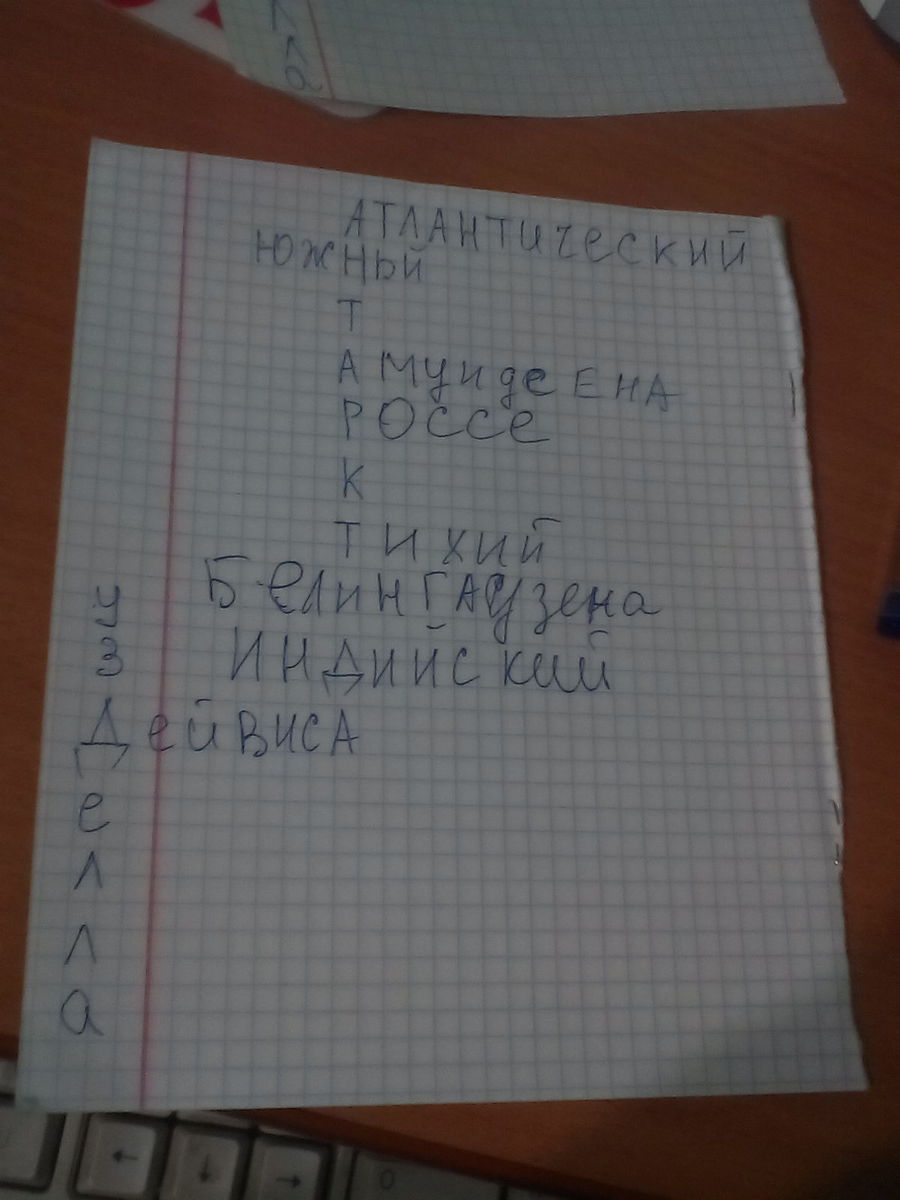 лла
АТЛАНТИЧеСКИЙ
ЮЖНЫЙ
Т
АМУНДСЕНА
РОССЕ
К
ТИХИЙ
БелиНГАУзена
ИНДИЙСКИЙ
ДейВИСА
узделла